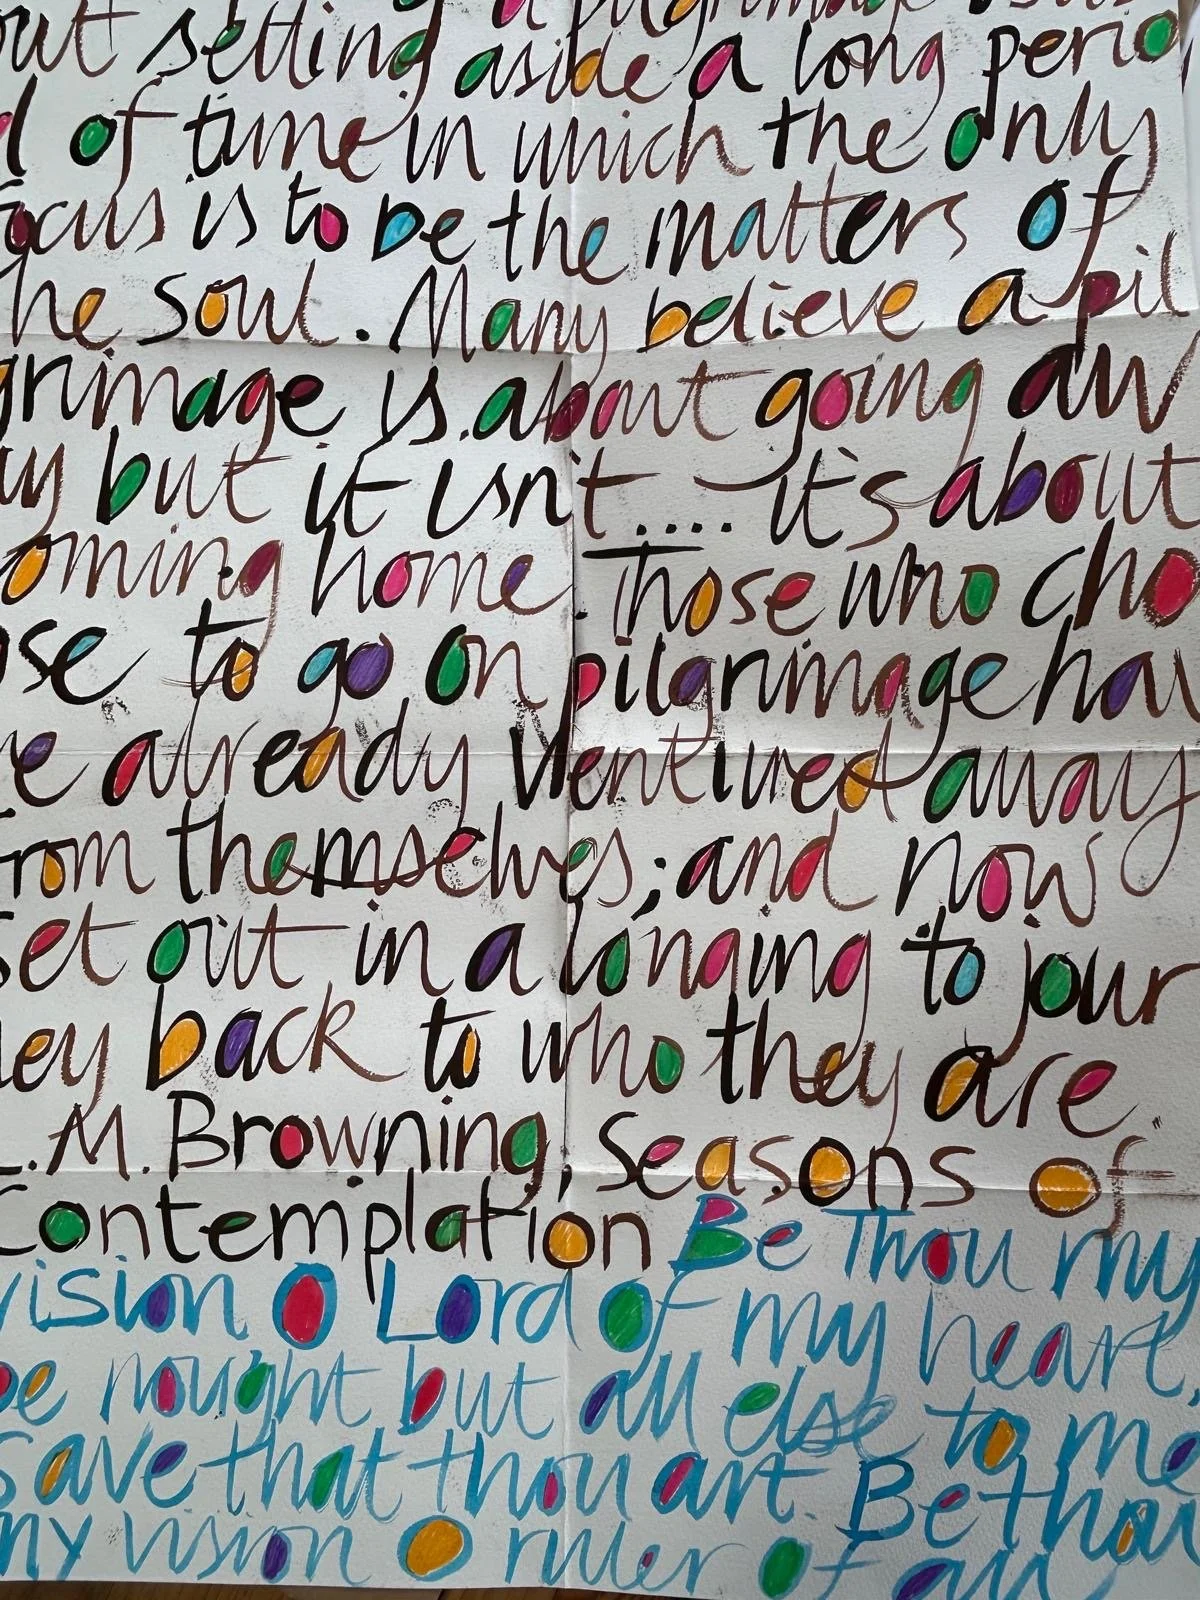 a pilgrimage
out setting aside a long perio
d of time in which the only
focus is to be the matters of
he soul. Many believe a pil
grimage is about going aw
ay but it isn't.... it's about
oming home. Those who cho
ose to go on pilgrimage hav
e already ventured away
from themselves; and now
set out in a longing to jour
ney back to who they are."
L.M. Browning, Seasons of
Contemplation Be Thou my
vision O Lord of my heart,
be nought but all else to me
save that thou art. Be thou
my vision O ruler of all